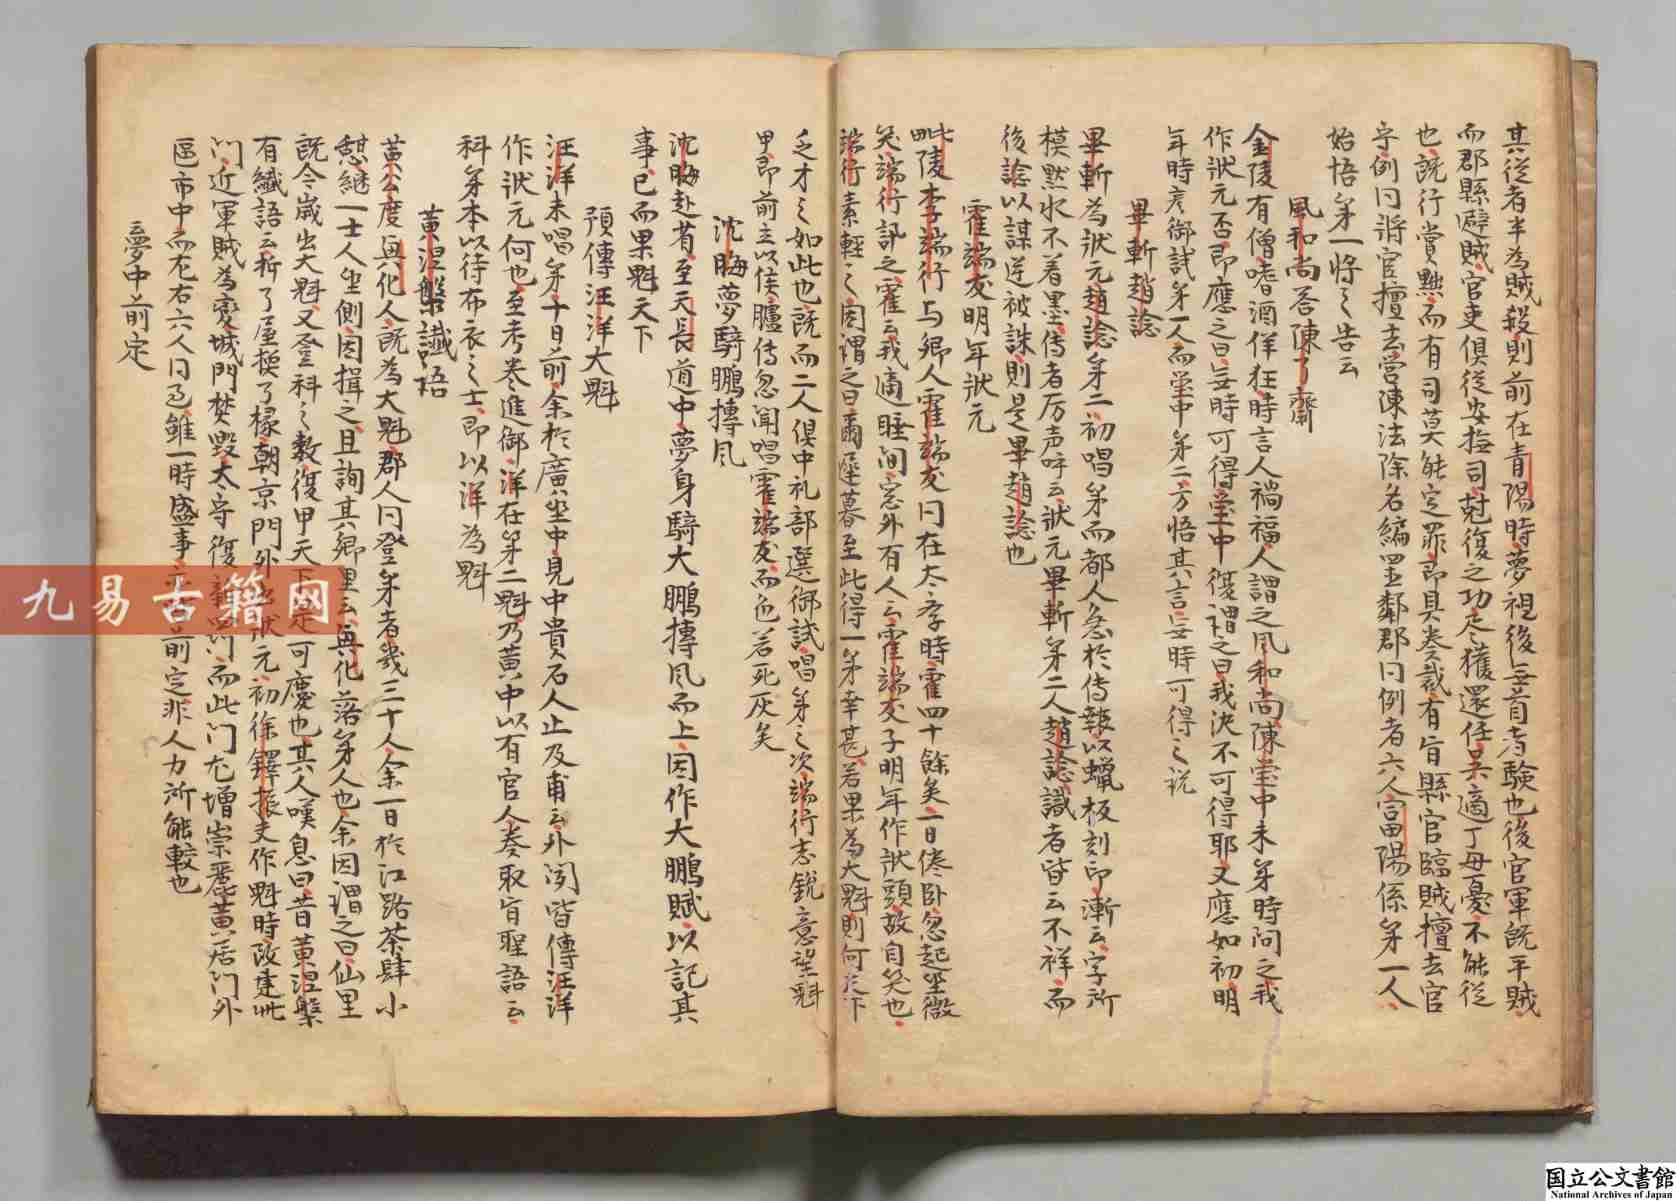 其從者半為賊殺則前在青陽時夢祖後無首者驗也後官軍既平賊
而郡縣避賊官吏俱從安撫司尅復之功尽獲還任吴適丁母憂不能從
也既行賞黜而有司莫能定罪即具奏裁有旨縣官臨賊擅去官
守例曰將官擅去営陳法除名編置鄰郡曰例者六人富陽係第一人
始悟第一將之告云
風和尚荅陳了齋
金陵有僧嗜酒佯狂時言人禍福人謂之風和尚陳瑩中未第時問之我
作狀元否即應之曰無時可得瑩中復謂之曰我決不可得耶又應如初明
年時彦御試第一人而瑩中第二方悟其言無時可得之説
畢斬趙諗
畢斬為狀元趙諗第二初唱第而都人急於傳報以蠟板刻印漸云字所
模黙水不着墨傳者厉声呼云狀元畢斬第二人趙諗識者皆云不祥而
後諗以謀逆被誅則是畢趙諗也
霍端友明年狀元
毗陵李端行与鄉人霍端友同在太学時霍四十餘矣一日倦卧忽起坐微
笑端行訊之霍云我適睡间窓外有人云霍端友子明年作狀頭故自笑也
端行素輕之因謂之曰爾遲暮至此得一第幸甚若果為大魁則何天下
乏才之如此也既而二人俱中礼部選御試唱第之次端行志鋭意望魁
甲即前立以俟臚傳忽聞唱霍端友而色若死灰矣
沈晦夢騎鵬摶風
沈晦赴省至天長道中夢身騎大鵬摶風而上因作大鵬賦以記其
事已而果魁天下
預傳汪洋大魁
汪洋未唱第十日前余於廣坐中見中貴石人止及甫云外间皆傳汪洋
作狀元何也至考卷進御洋在第二魁乃黄中以有官人奏取旨聖語云
科第本以待布衣之士即以洋為魁
黄涅槃讖語
黄公度興化人既為大魁郡人同登第者幾三十人余一日於江路茶肆小
憩継一士人坐側因揖之且詢其鄉里云興化落第人也余因謂之曰仙里
既今歳出大魁又登科之数復甲天下是可慶也其人嘆息曰昔黄涅槃
有讖語云拆了屋換了椽朝京門外出狀元初徐鐸振文作魁時改建此
门近軍賊為変城門焚毀太守復新四门而此门尤增崇麗黄居门外
區市中而左右六人同過雖一時盛事亦皆前定非人力所能較也
夢中前定
九易古籍网
国立公文書館
National Archives of Japan